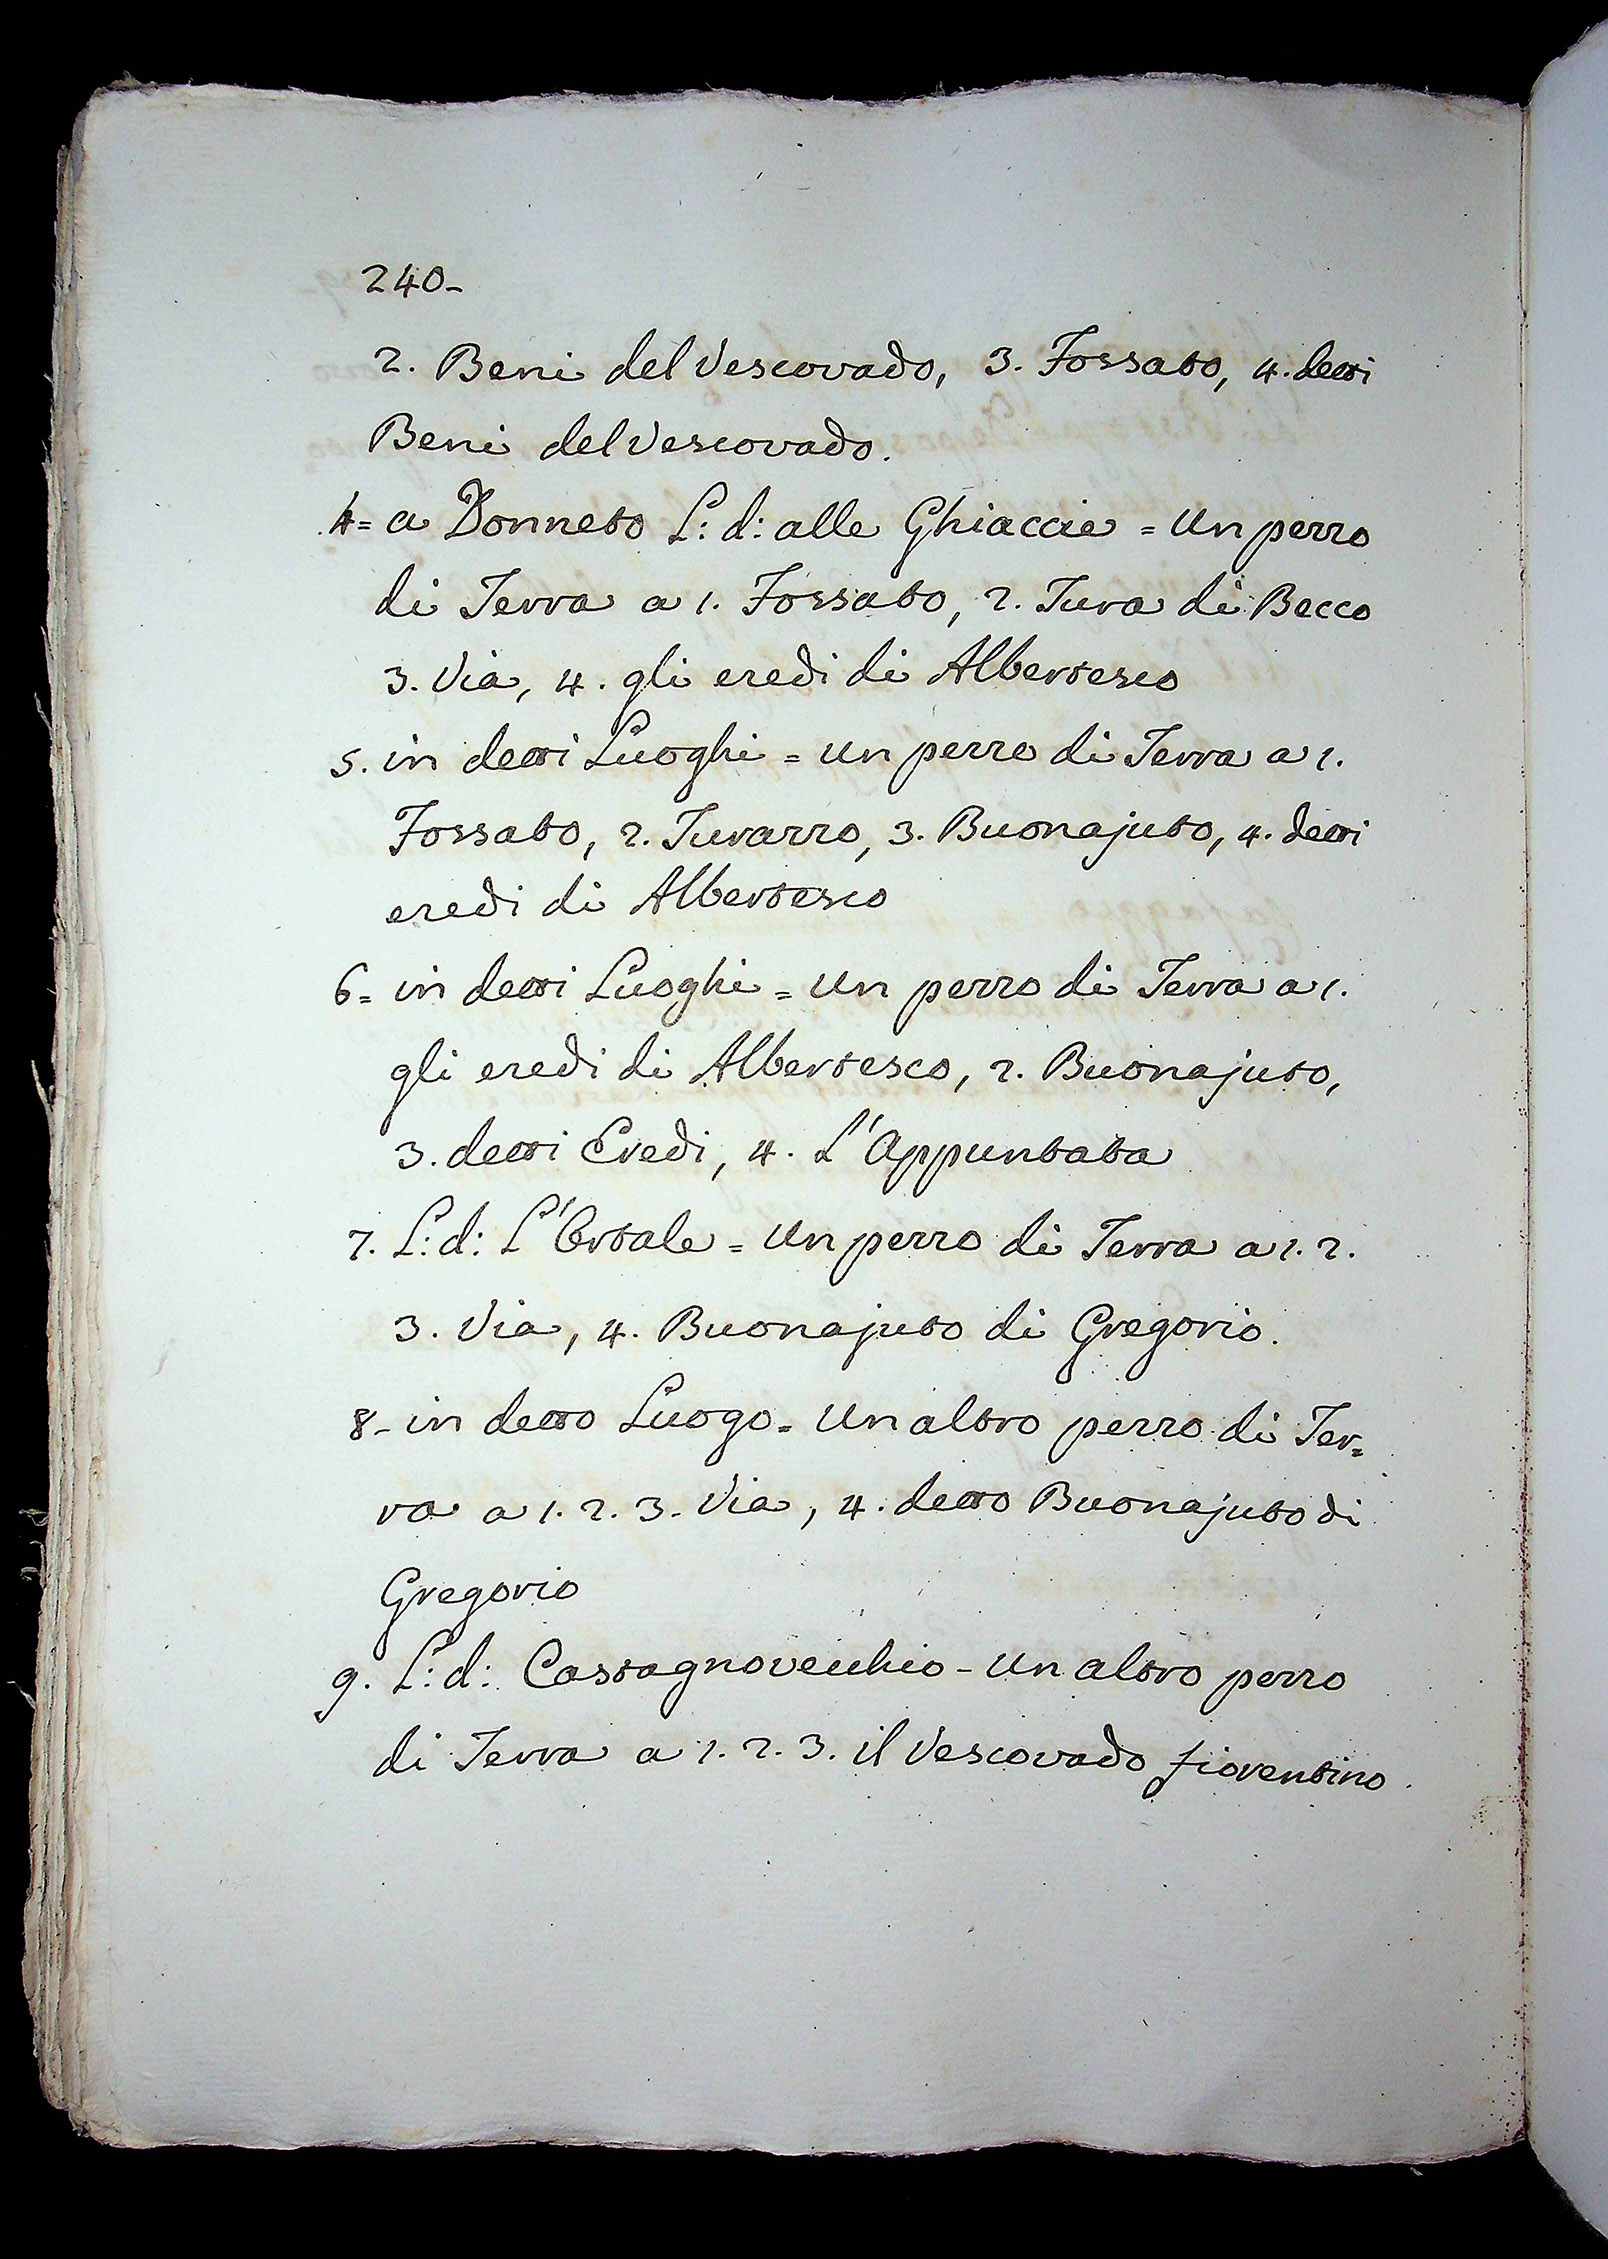 240-
2. Beni del Vescovado, 3. Fossato, 4. detti
Beni del Vescovado.
4= a Donneto L: d: alle Ghiaccie = Un pezzo
di Terra a 1. Fossato, 2. Tura di Becco
3. Via, 4. gli eredi di Albertesco
5. in detti Luoghi = Un pezzo di Terra a 1.
Fossato, 2. Turazzo, 3. Buonajuto, 4. detti
eredi di Albertesco
6= in detti Luoghi = Un pezzo di Terra a 1.
gli eredi di Albertesco, 2. Buonajuto,
3. detti Eredi, 4. L'Appuntata
7. L: d: L'Ortale = Un pezzo di Terra a 1. 2.
3. Via, 4. Buonajuto di Gregorio.
8- in detto Luogo = Un altro pezzo di Ter=
ra a 1. 2. 3. Via, 4. detto Buonajuto di
Gregorio
9. L: d: Castagnovecchio - Un altro pezzo
di Terra a 1. 2. 3. il Vescovado fiorentino.